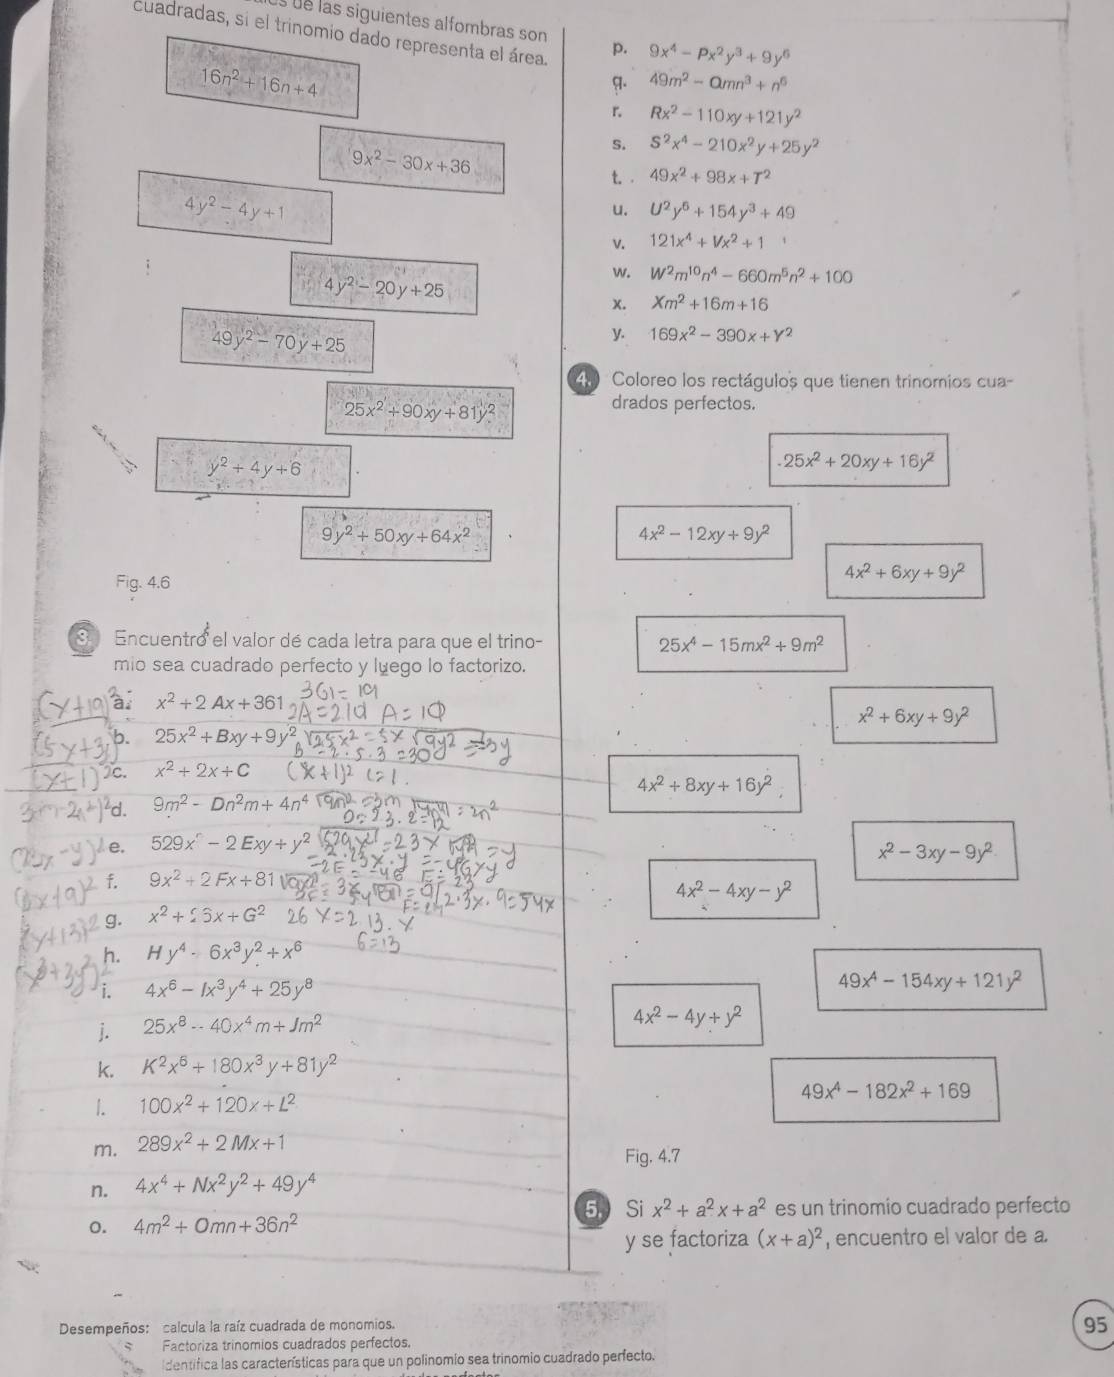 de las siguientes alfombras son
cuadradas, si el trinomio dado representa el área.
16n² + 16n + 4
9x² − 30x + 36
4y² − 4y + 1
4y² − 20y + 25
49y² − 70y + 25
25x² + 90xy + 81y²
y² + 4y + 6
9y² + 50xy + 64x²
Fig. 4.6
3. Encuentro el valor de cada letra para que el trino-
mio sea cuadrado perfecto y luego lo factorizo.
a. x² + 2Ax + 361
361 = 19
2A = 219 A = 19
b. 25x² + Bxy + 9y²
√25x² = 5x √9y² = 3y
B = 2·5·3 = 30
(5x+3y)
c. x² + 2x + C (x+1)² C = 1.
(x+1)²
d. 9m² - Dn²m + 4n⁴
D = 2·3·2 = 12
e. 529x² − 2Exy + y²
f. 9x² + 2Fx + 81
(3x+9)²
g. x² + 26x + G² 26x = 2.13.x
G = 13
h. Hy⁴ - 6x³y² + x⁶
i. 4x⁶ − Ix³y⁴ + 25y⁸
j. 25x⁸ -- 40x⁴m + Jm²
k. K²x⁶ + 180x³y + 81y²
l. 100x² + 120x + L²
m. 289x² + 2Mx + 1
n. 4x⁴ + Nx²y² + 49y⁴
o. 4m² + Omn + 36n²
p. 9x⁴ − Px²y³ + 9y⁶
q. 49m² − Qmn³ + n⁶
r. Rx² − 110xy + 121y²
s. S²x⁴ − 210x²y + 25y²
t. 49x² + 98x + T²
u. U²y⁶ + 154y³ + 49
v. 121x⁴ + Vx² + 1
w. W²m¹⁰n⁴ − 660m⁵n² + 100
x. Xm² + 16m + 16
y. 169x² − 390x + Y²
4. Coloreo los rectágulos que tienen trinomios cua-
drados perfectos.
25x² + 20xy + 16y²
4x² − 12xy + 9y²
4x² + 6xy + 9y²
25x⁴ − 15mx² + 9m²
x² + 6xy + 9y²
4x² + 8xy + 16y²
x² − 3xy − 9y²
4x² − 4xy − y²
49x⁴ − 154xy + 121y²
4x² − 4y + y²
49x⁴ − 182x² + 169
Fig. 4.7
5. Si x² + a²x + a² es un trinomio cuadrado perfecto
y se factoriza (x + a)², encuentro el valor de a.
Desempeños: calcula la raíz cuadrada de monomios.
Factoriza trinomios cuadrados perfectos.
Identifica las características para que un polinomio sea trinomio cuadrado perfecto.
95